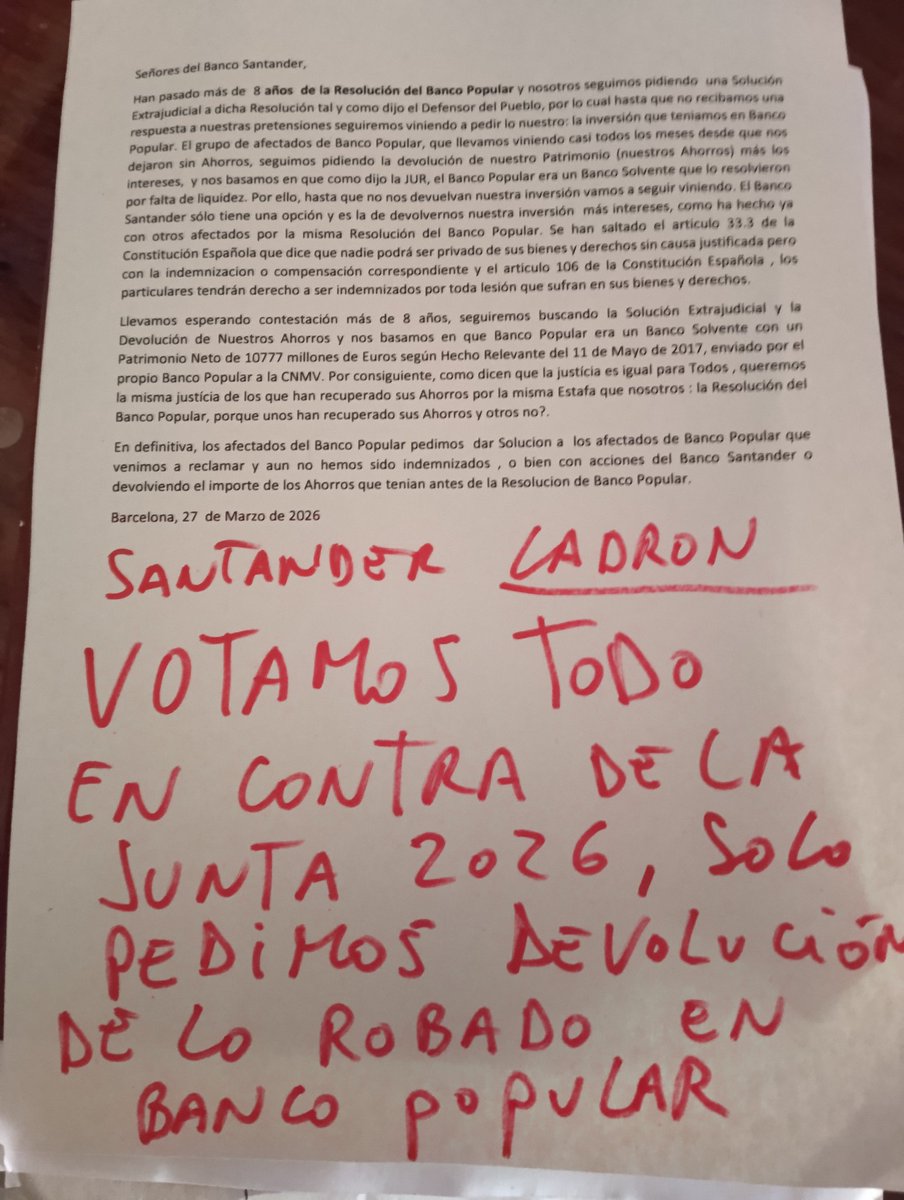 Señores del Banco Santander,
Han pasado más de 8 años de la Resolución del Banco Popular y nosotros seguimos pidiendo una Solución
Extrajudicial a dicha Resolución tal y como dijo el Defensor del Pueblo, por lo cual hasta que no recibamos una
respuesta a nuestras pretensiones seguiremos viniendo a pedir lo nuestro: la inversión que teniamos en Banco
Popular. El grupo de afectados de Banco Popular, que llevamos viniendo casi todos los meses desde que nos
dejaron sin Ahorros, seguimos pidiendo la devolución de nuestro Patrimonio (nuestros Ahorros) más los
intereses, y nos basamos en que como dijo la JUR, el Banco Popular era un Banco Solvente que lo resolvieron
por falta de liquidez. Por ello, hasta que no nos devuelvan nuestra inversión vamos a seguir viniendo. El Banco
Santander sólo tiene una opción y es la de devolvernos nuestra inversión más intereses, como ha hecho ya
con otros afectados por la misma Resolución del Banco Popular. Se han saltado el articulo 33.3 de la
Constitución Española que dice que nadie podrá ser privado de sus bienes y derechos sin causa justificada pero
con la indemnizacion o compensación correspondiente y el articulo 106 de la Constitución Española , los
particulares tendrán derecho a ser indemnizados por toda lesión que sufran en sus bienes y derechos.
Llevamos esperando contestación más de 8 años, seguiremos buscando la Solución Extrajudicial y la
Devolución de Nuestros Ahorros y nos basamos en que Banco Popular era un Banco Solvente con un
Patrimonio Neto de 10777 millones de Euros según Hecho Relevante del 11 de Mayo de 2017, enviado por el
propio Banco Popular a la CNMV. Por consiguiente, como dicen que la justícia es igual para Todos , queremos
la misma justícia de los que han recuperado sus Ahorros por la misma Estafa que nosotros : la Resolución del
Banco Popular, porque unos han recuperado sus Ahorros y otros no?.
En definitiva, los afectados del Banco Popular pedimos dar Solucion a los afectados de Banco Popular que
venimos a reclamar y aun no hemos sido indemnizados , o bien con acciones del Banco Santander o
devolviendo el importe de los Ahorros que tenian antes de la Resolucion de Banco Popular.
Barcelona, 27 de Marzo de 2026
SANTANDER LADRON
VOTAMOS TODO
EN CONTRA DE LA
JUNTA 2026, SOLO
PEDIMOS DEVOLUCIÓN
DE LO ROBADO EN
BANCO POPULAR